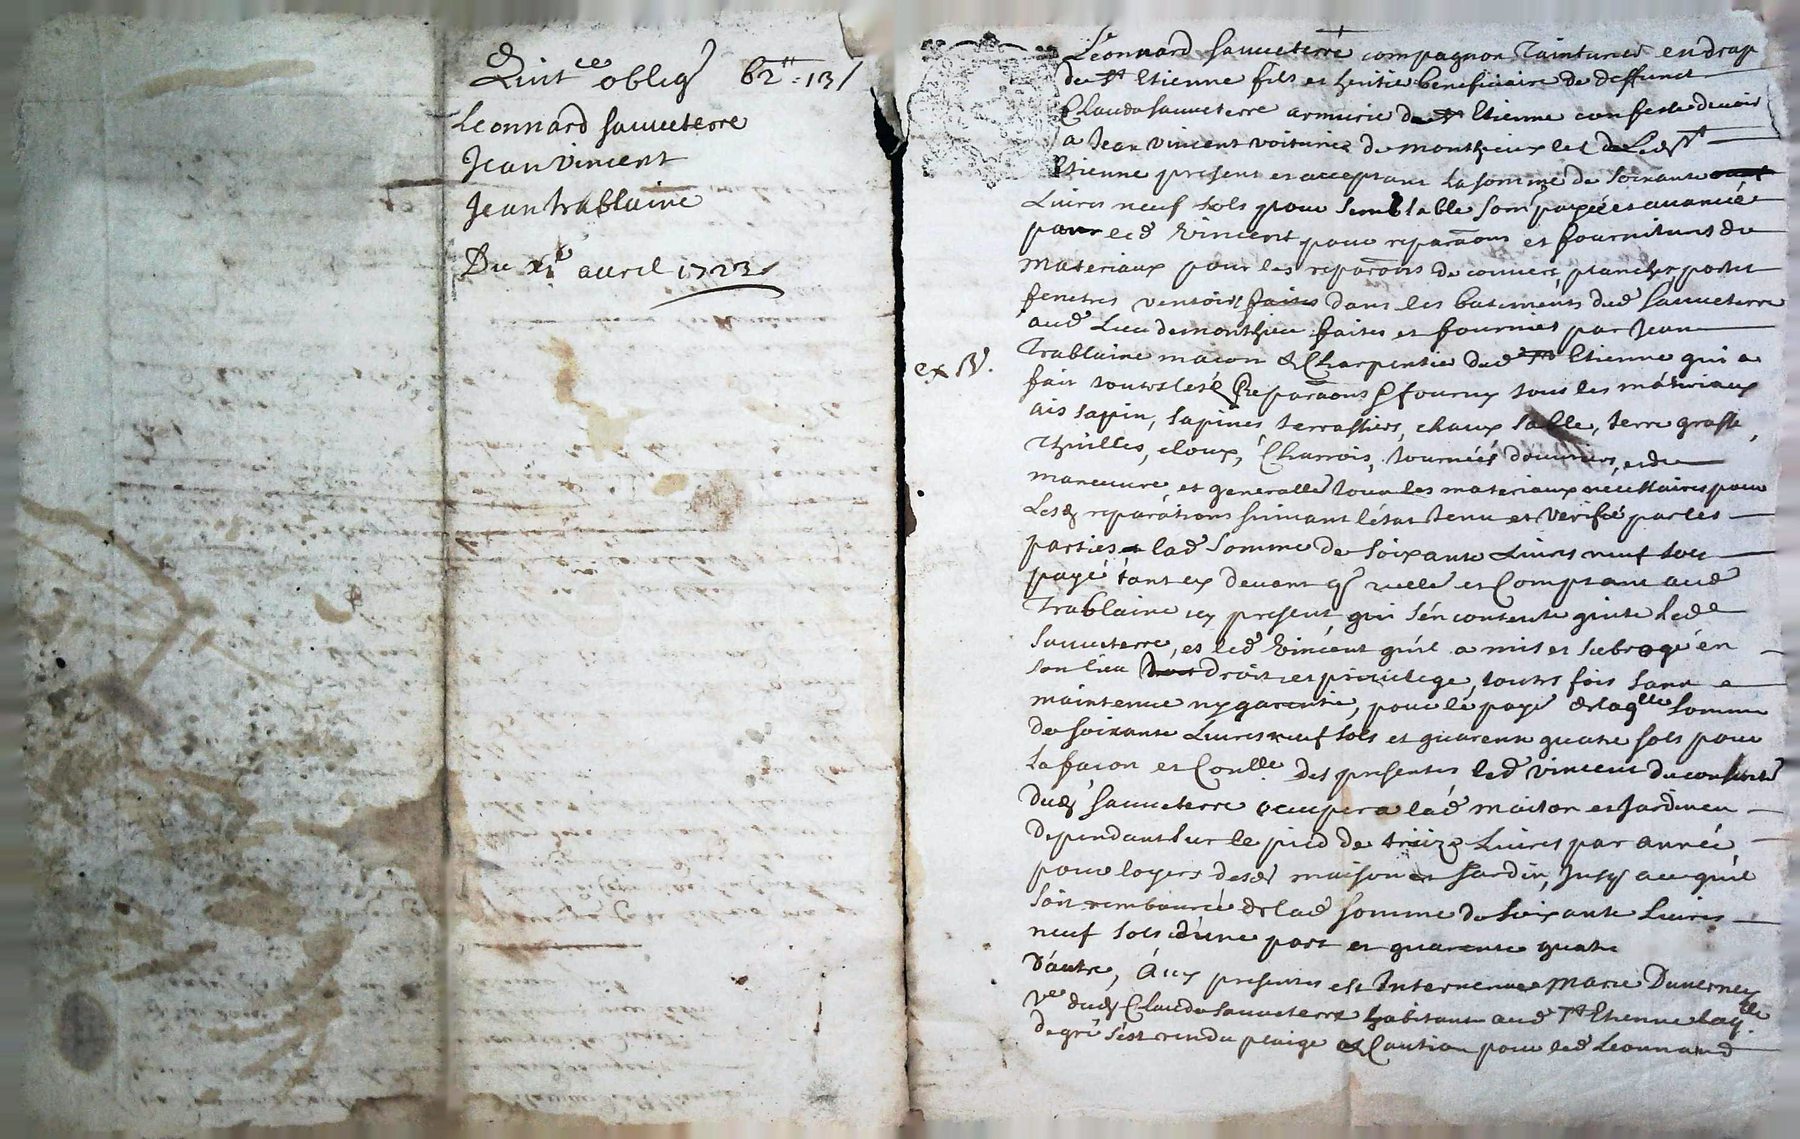 Quit.ce oblig 62ᴸᴸ:13ſ
Leonnard sauveterre
Jean vincent
Jean trablaine
Du xi.e avril 1723
Leonnard sauveterre compagnon Tainturier en drap
de St Etienne fils et heritie beneficiaire de deffunct
Claude sauveterre armurie de St Etienne confesse devoir
a Jean vincent voiturie de monthieux les St
Etienne present et acceptant la somme de soixante
Livres neuf sols pour semblable som payée et avancée
par led Vincent pour reparaons et fournitures de
materiaux pour les reparaons de couvert, planches, portes
fenetres ventoirs faites dans les batiments dud sauveterre
aud Lieu de monthieu faites et fournies par Jean
ex B.
Trablaine macon & Charpentie dud St Etienne qui a
fait touttes lesd Reparaons & fourny tous les matériaux
ais sapin, sapines terrassiers, chaux sable, terre grasse,
thuilles, cloux, Charrois, tournées douvriers, et de
maneuvre et generalle tous les materiaux necessaires pour
Lesd reparations suivant létat tenu et verifié par les
parties lad somme de soixante Livres neuf sols
payé tant cy devant q reelle et Comptant aud
Trablaine icy present qui sén contente quite led
sauveterre, et led Vincent quil a mis et subrogé én
son lieu droit et privilege, toutes fois sans
maintenue ny garentie, pour le paye de laqlle somme
de soixante Livres neuf sols et quarente quatre sols pour
la facon et Coulle des presentes led vincent du consente
dud sauveterre occupera lad maison et Jardin en
dependant sur le pied de treize Livres par année
pour loyers desd maison et Jardin, Jusq ace quil
soit rembourcé de lad somme de soixante Livres
neuf sols dúne part et quarente quatre
d'autre, Aux presentes est Intervenue Marie Duverney
ve dud Claude sauveterre habitante aud St Etienne laq.lle
de gré s'est rendu pleige & Caution pour led Leonnard